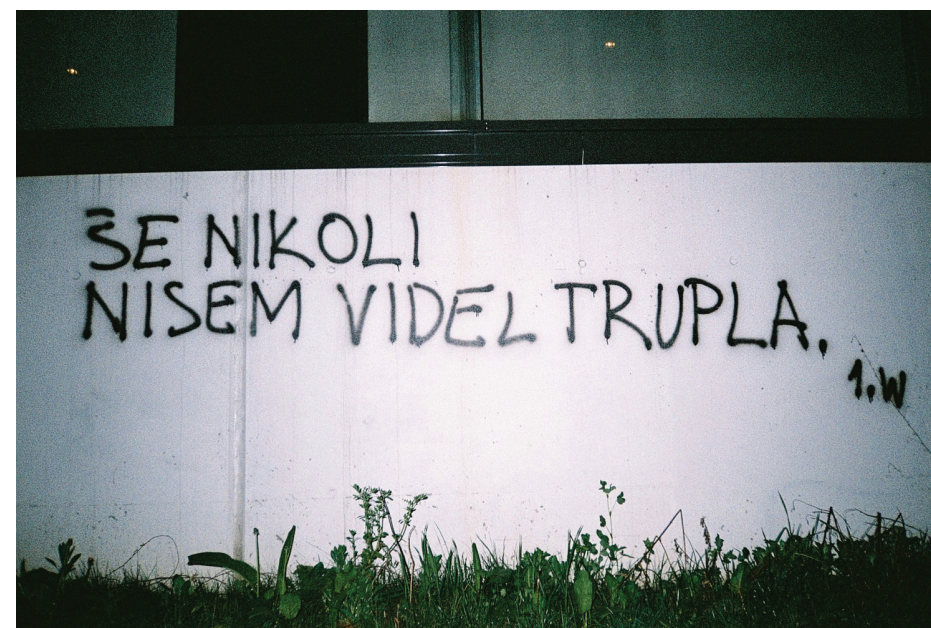 ŠE NIKOLI
NISEM VIDEL TRUPLA.
1.W